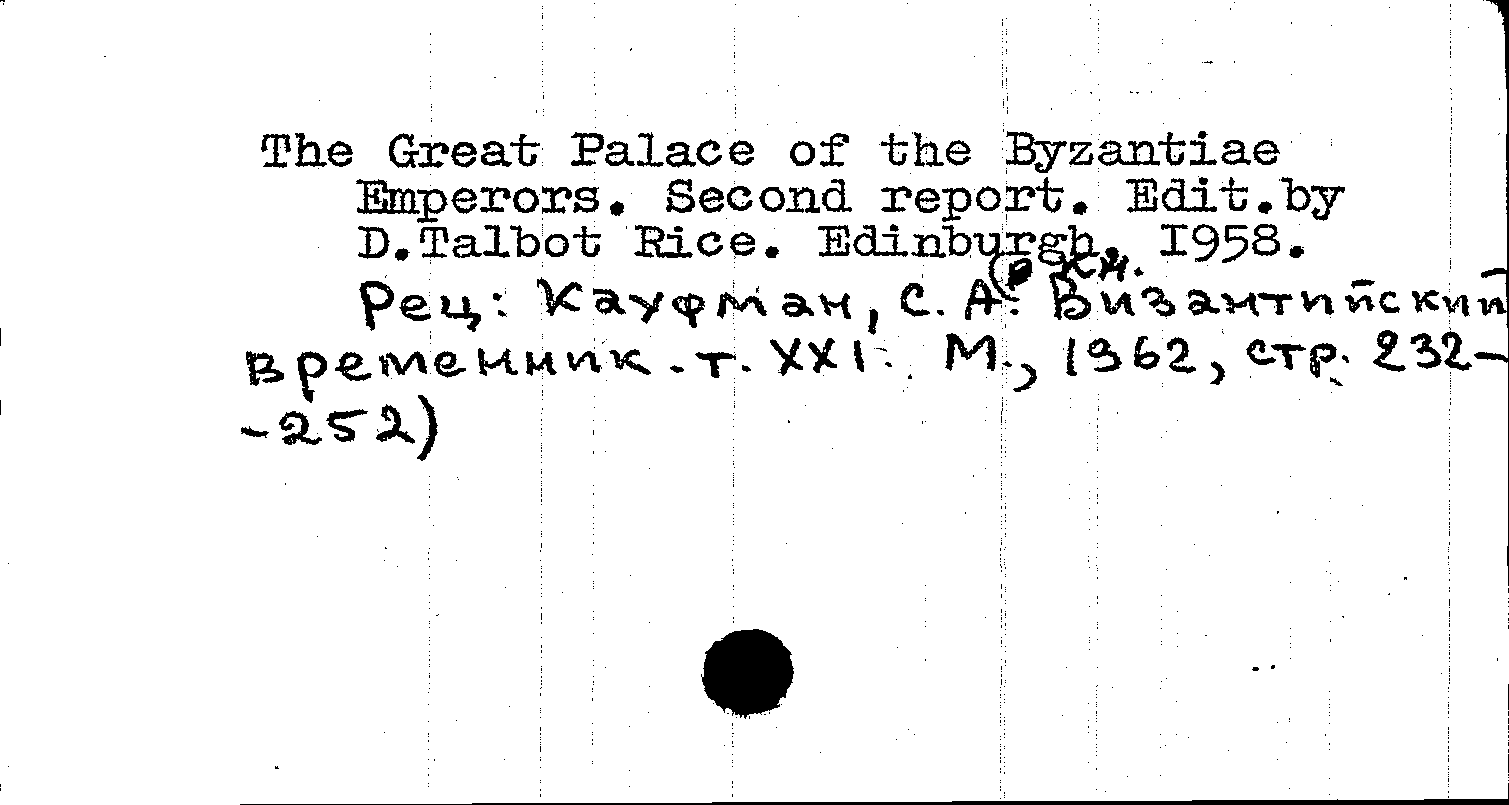 The Great Palace of the Byzantiae
Emperors. Second report. Edit.by
D.Talbot Rice. Edinburgh. I958.
Рец: Кауфман, С. А. (в кн. Византийский
временник. т. XXI. М., 1962, стр. 232-
-252)